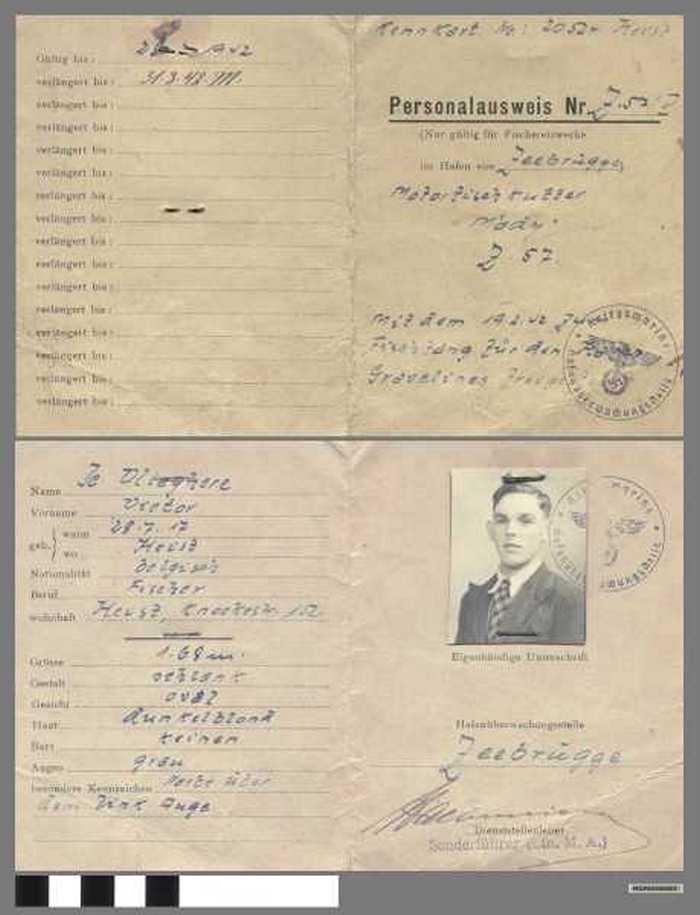 Gültig bis:
verlängert bis: 31.3.43. M.
verlängert bis:
verlängert bis:
verlängert bis:
verlängert bis:
verlängert bis:
verlängert bis:
verlängert bis:
verlängert bis:
verlängert bis:
verlängert bis:
verlängert bis:
verlängert bis:
verlängert bis:
verlängert bis:
Kennkart Nr: Heyst
Personalausweis Nr. Z. 57
(Nur gültig für Fischereizwecke
im Hafen von Zeebrügge)
Motorfischkutter
Z 57.
Mit dem 19.2.42 zur
Fischfang für den Hafen
Gravelines
Kriegsmarine
Hafenüberwachungsstelle
Name De Vlieghere
Vorname Victor
geb. wann 28.7.17
wo Heyst
Nationalität belgisch
Beruf Fischer
wohnhaft Heyst, Knockestr. 152
Grösse 1.68 m.
Gestalt schlank
Gesicht oval
Haar dunkelblond
Bart keinen
Augen grau
besondere Kennzeichen Narbe über
dem link Auge
Eigenhändige Unterschrift
Hafenüberwachungsstelle
Zeebrügge
Dienststellenleiter
Sonderführer M. A.)